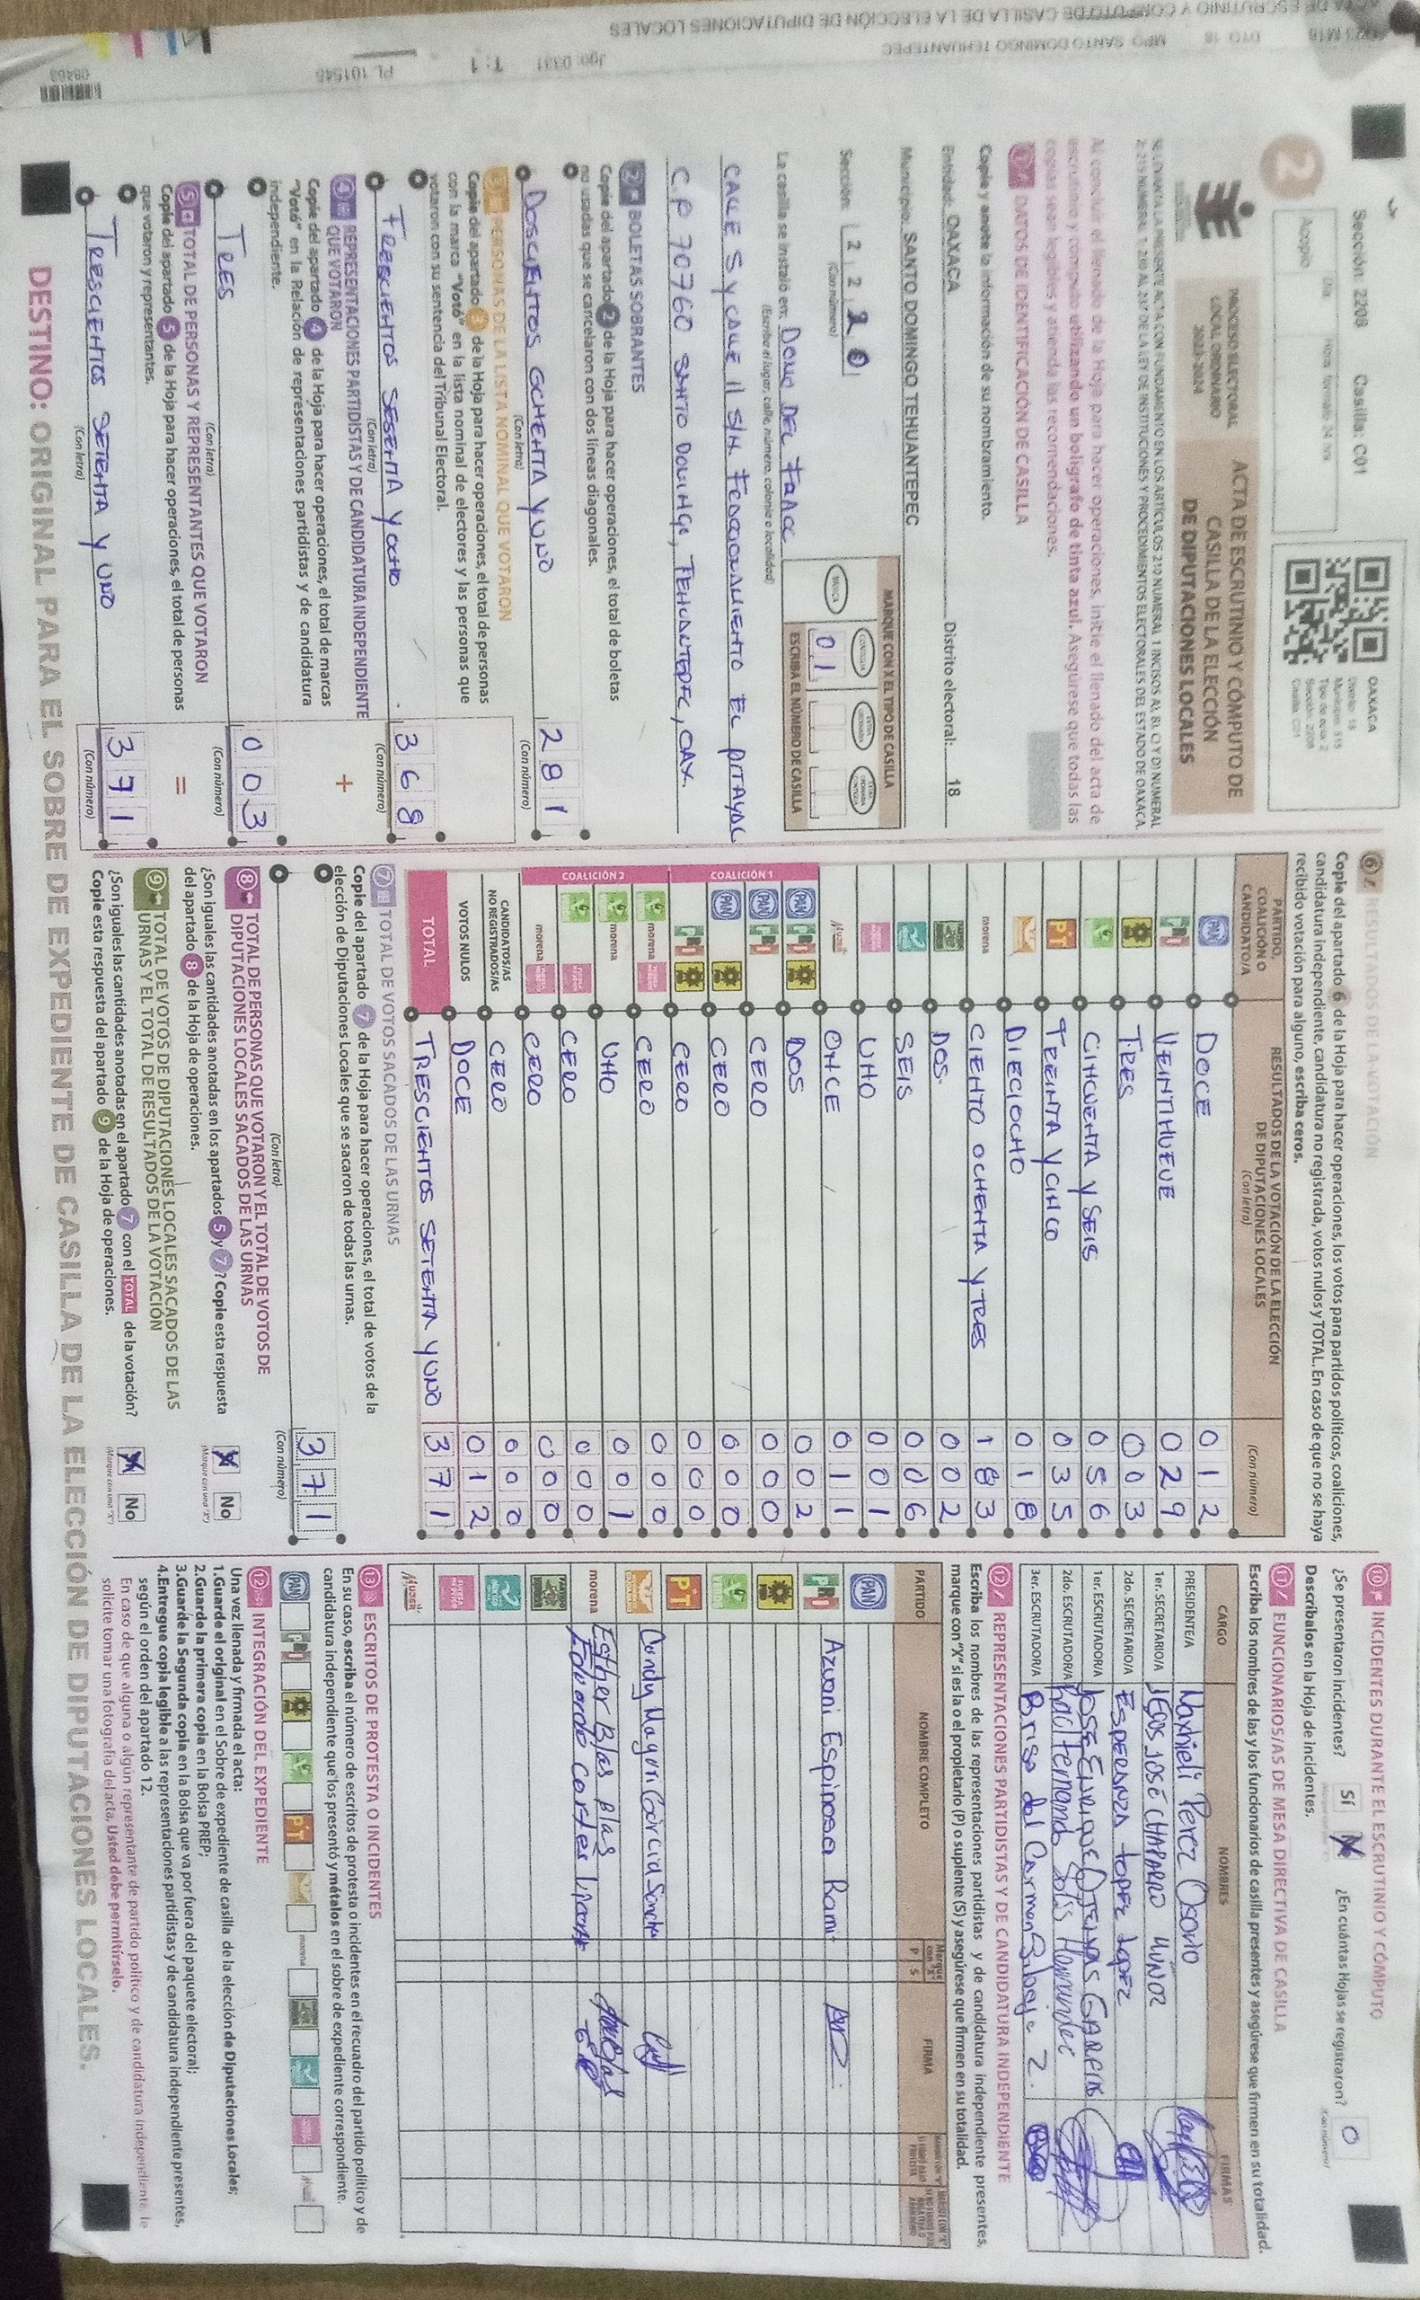 Sección: 2208 Casilla: C01
2
Acopio
OAXACA
PROCESO ELECTORAL
LOCAL ORDINARIO
2023-2024
ACTA DE ESCRUTINIO Y CÓMPUTO DE
CASILLA DE LA ELECCIÓN
DE DIPUTACIONES LOCALES
Al concluir el llenado de la Hoja para hacer operaciones, inicie el llenado del acta de
escrutinio y cómputo utilizando un bolígrafo de tinta azul. Asegúrese que todas las
copias sean legibles y atienda las recomendaciones.
DATOS DE IDENTIFICACIÓN DE CASILLA
Copie y anote la información de su nombramiento.
Entidad: OAXACA Distrito electoral: 18
Municipio: SANTO DOMINGO TEHUANTEPEC
Sección: 2 2 2 0
(Con número)
MARQUE CON X EL TIPO DE CASILLA
ESCRIBA EL NÚMERO DE CASILLA
0 1
La casilla se instaló en: DOMO DEL
(Escriba el lugar, calle, número, colonia o localidad)
CALLE 5 Y CALLE 11 S/N FRACCIONAMIENTO EL PITAYAL
C.P 70760 SANTO DOMINGO, TEHUANTEPEC, OAX.
2 BOLETAS SOBRANTES
Copie del apartado 2 de la Hoja para hacer operaciones, el total de boletas
no usadas que se cancelaron con dos líneas diagonales.
DOSCIENTOS OCHENTA Y UNO 2 8 1
(Con letra) (Con número)
3 PERSONAS DE LA LISTA NOMINAL QUE VOTARON
Copie del apartado 3 de la Hoja para hacer operaciones, el total de personas
con la marca "Votó" en la lista nominal de electores y las personas que
votaron con su sentencia del Tribunal Electoral.
TRESCIENTOS SESENTA Y OCHO 3 6 8
(Con letra) (Con número)
4 REPRESENTACIONES PARTIDISTAS Y DE CANDIDATURA INDEPENDIENTE
QUE VOTARON
+
Copie del apartado 4 de la Hoja para hacer operaciones, el total de marcas
"Votó" en la Relación de representaciones partidistas y de candidatura
independiente.
TRES 0 0 3
(Con letra) (Con número)
5 TOTAL DE PERSONAS Y REPRESENTANTES QUE VOTARON
=
Copie del apartado 5 de la Hoja para hacer operaciones, el total de personas
que votaron y representantes.
TRESCIENTOS SETENTA Y UNO 3 7 1
(Con letra) (Con número)
6 RESULTADOS DE LA VOTACIÓN
Copie del apartado 6 de la Hoja para hacer operaciones, los votos para partidos políticos, coaliciones,
candidatura independiente, candidatura no registrada, votos nulos y TOTAL. En caso de que no se haya
recibido votación para alguno, escriba ceros.
PARTIDO, COALICIÓN O CANDIDATO/A
RESULTADOS DE LA VOTACIÓN DE LA ELECCIÓN DE DIPUTACIONES LOCALES
(Con letra) (Con número)
PAN DOCE 0 1 2
PRI VEINTINUEVE 0 2 9
TRES 0 0 3
CINCUENTA Y SEIS 0 5 6
PT TREINTA Y CINCO 0 3 5
DIECIOCHO 0 1 8
morena CIENTO OCHENTA Y TRES 1 8 3
DOS 0 0 2
SEIS 0 0 6
UNO 0 0 1
Mujer ONCE 0 1 1
COALICIÓN 1
PAN PRI DOS 0 0 2
PAN PRI CERO 0 0 0
PAN CERO 0 0 0
PRI CERO 0 0 0
COALICIÓN 2
morena CERO 0 0 0
morena UNO 0 0 1
CERO 0 0 0
morena CERO 0 0 0
CANDIDATOS/AS NO REGISTRADOS/AS CERO 0 0 0
VOTOS NULOS DOCE 0 1 2
TOTAL TRESCIENTOS SETENTA Y UNO 3 7 1
7 TOTAL DE VOTOS SACADOS DE LAS URNAS
Copie del apartado 7 de la Hoja para hacer operaciones, el total de votos de la
elección de Diputaciones Locales que se sacaron de todas las urnas.
3 7 1
(Con letra) (Con número)
8 TOTAL DE PERSONAS QUE VOTARON Y EL TOTAL DE VOTOS DE
DIPUTACIONES LOCALES SACADOS DE LAS URNAS
¿Son iguales las cantidades anotadas en los apartados 5 y 7? Copie esta respuesta
del apartado 8 de la Hoja de operaciones.
No
9 TOTAL DE VOTOS DE DIPUTACIONES LOCALES SACADOS DE LAS
URNAS Y EL TOTAL DE RESULTADOS DE LA VOTACIÓN
¿Son iguales las cantidades anotadas en el apartado 7 con el TOTAL de la votación?
Copie esta respuesta del apartado 9 de la Hoja de operaciones.
No
10 INCIDENTES DURANTE EL ESCRUTINIO Y CÓMPUTO
¿Se presentaron incidentes? Sí ¿En cuántas Hojas se registraron? 0
Descríbalos en la Hoja de incidentes.
11 FUNCIONARIOS/AS DE MESA DIRECTIVA DE CASILLA
Escriba los nombres de las y los funcionarios de casilla presentes y asegúrese que firmen en su totalidad.
CARGO NOMBRES FIRMAS
PRESIDENTE/A Naxhieli Perez Osorio
1er. SECRETARIO/A JOSÉ CHAPARRO MUÑOZ
2do. SECRETARIO/A ESPERANZA LOPEZ LOPEZ
1er. ESCRUTADOR/A JOSE ENRIQUE
2do. ESCRUTADOR/A Solis Hernandez
3er. ESCRUTADOR/A Brisa del Carmen Z.
12 REPRESENTACIONES PARTIDISTAS Y DE CANDIDATURA INDEPENDIENTE
Escriba los nombres de las representaciones partidistas y de candidatura independiente presentes,
marque con "X" si es la o el propietario (P) o suplente (S) y asegúrese que firmen en su totalidad.
PARTIDO NOMBRE COMPLETO P S FIRMA
PAN
PRI Azveni Espinosa Ram
PT
Candy García
morena Esther Blas Blas
Eduardo Cortes
Mujer
13 ESCRITOS DE PROTESTA O INCIDENTES
En su caso, escriba el número de escritos de protesta o incidentes en el recuadro del partido político y de
candidatura independiente que los presentó y métalos en el sobre de expediente correspondiente.
PAN PRI PT morena
12 INTEGRACIÓN DEL EXPEDIENTE
Una vez llenada y firmada el acta:
1.Guarde el original en el Sobre de expediente de casilla de la elección de Diputaciones Locales;
2.Guarde la primera copia en la Bolsa PREP;
3.Guarde la Segunda copia en la Bolsa que va por fuera del paquete electoral;
4.Entregue copia legible a las representaciones partidistas y de candidatura independiente presentes,
según el orden del apartado 12.
En caso de que alguna o algún representante de partido político y de candidatura independiente le
solicite tomar una fotografía del acta, Usted debe permitírselo.
DESTINO: ORIGINAL PARA EL SOBRE DE EXPEDIENTE DE CASILLA DE LA ELECCIÓN DE DIPUTACIONES LOCALES.
ACTA DE ESCRUTINIO Y CÓMPUTO DE CASILLA DE LA ELECCIÓN DE DIPUTACIONES LOCALES
DTO 18 MPO SANTO DOMINGO TEHUANTEPEC
T: 1
PL 101545